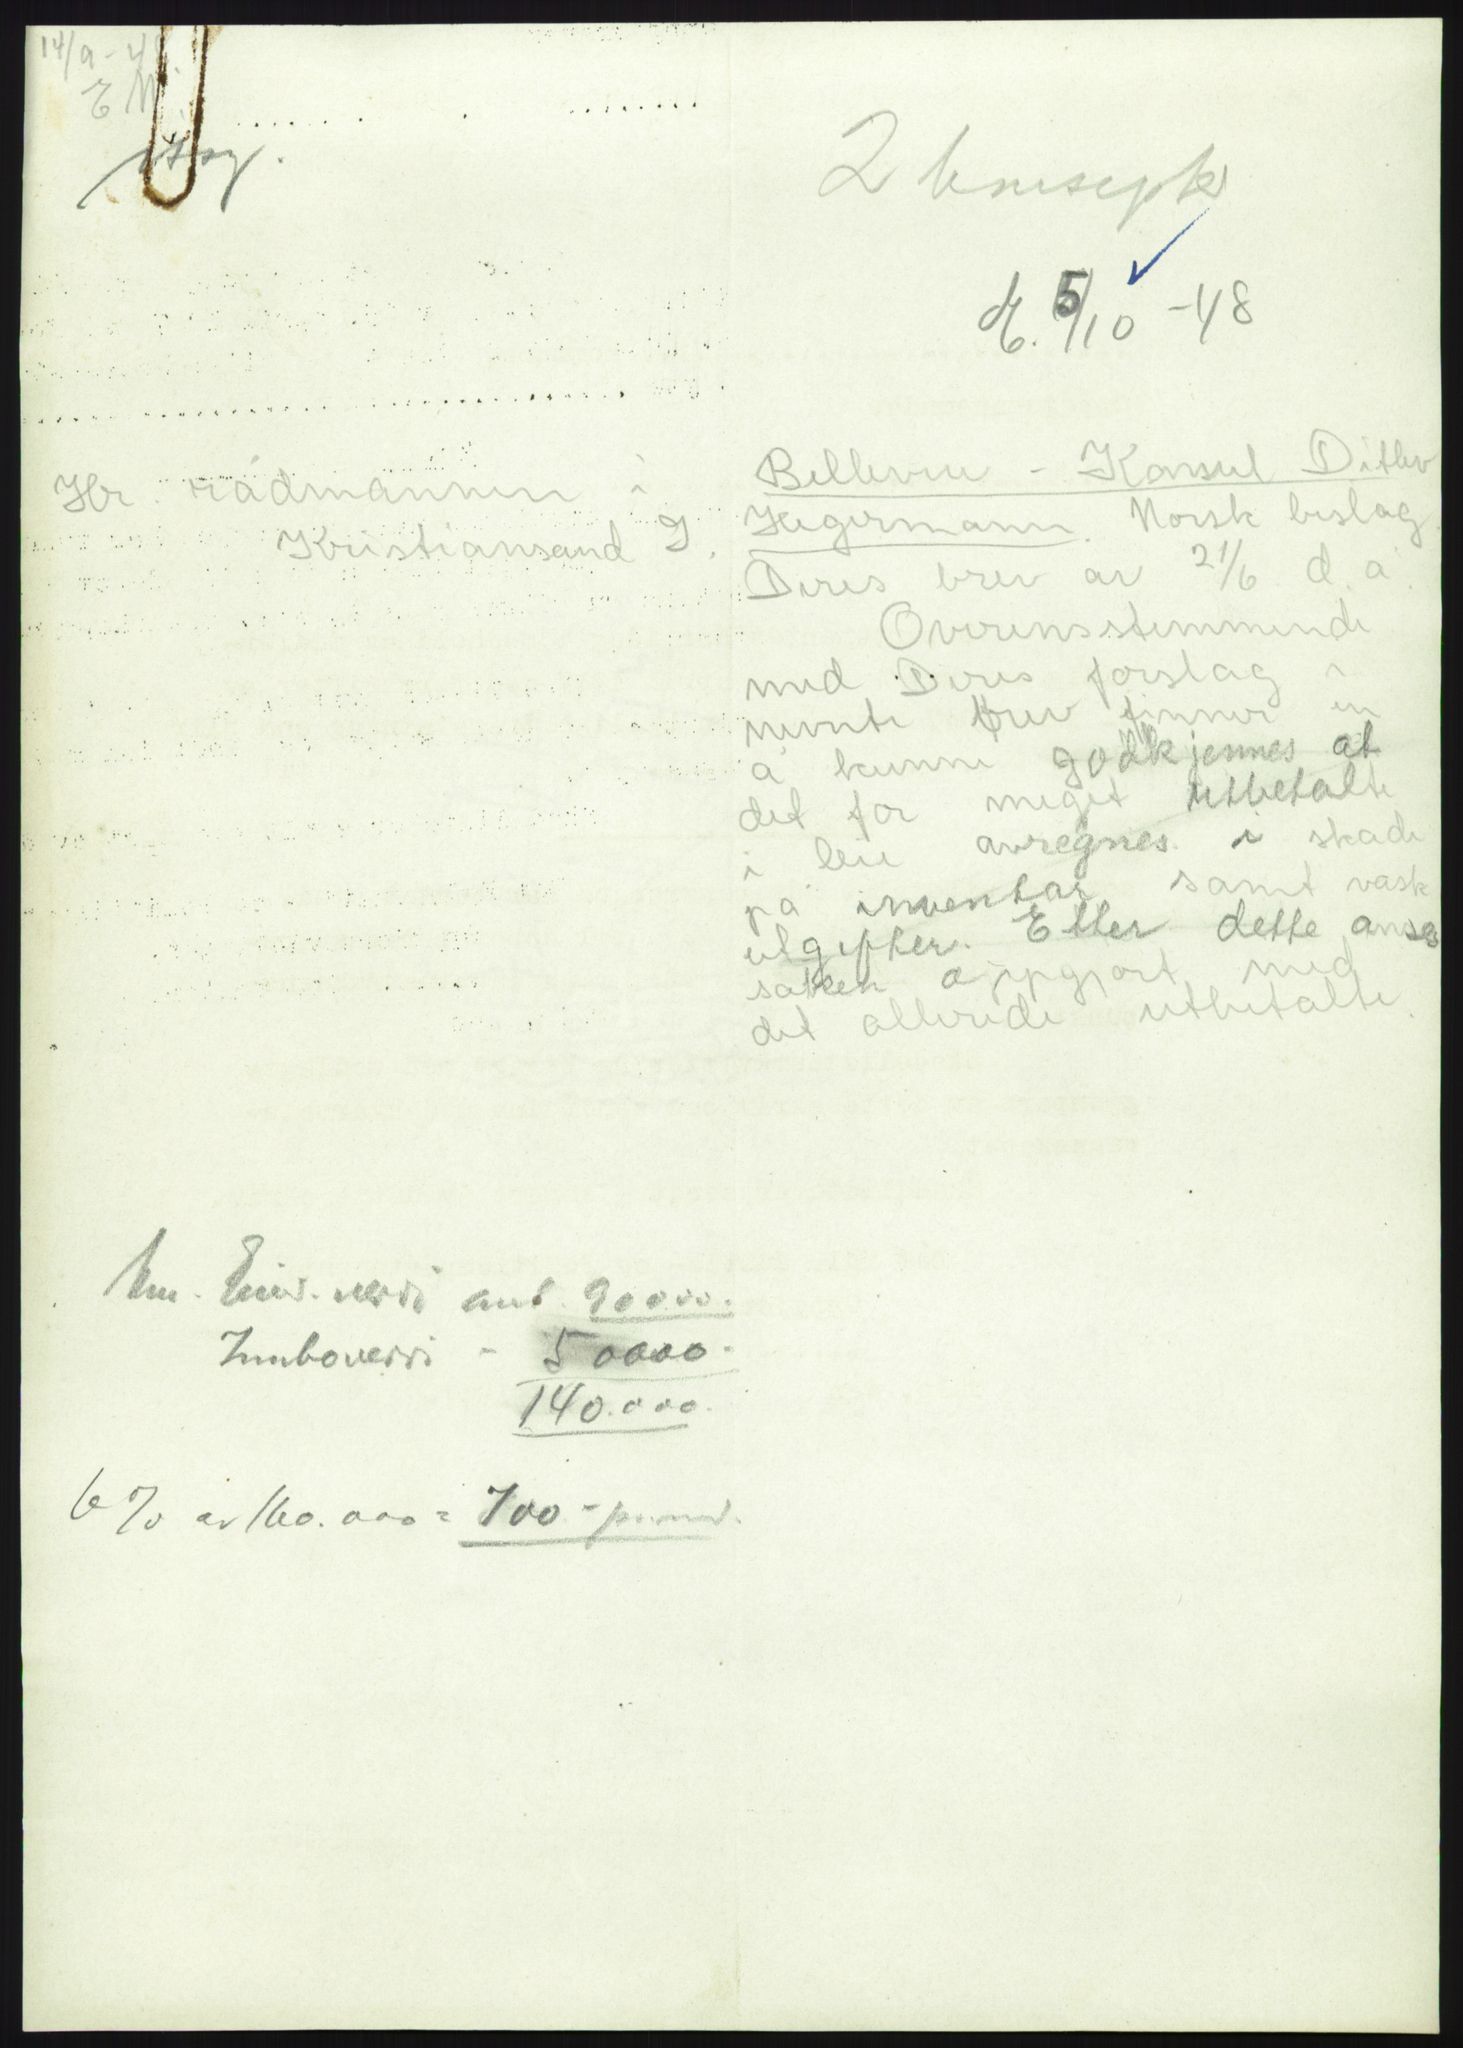 14/9-48.
E M
2
5/10 -48
Hr. rådmannen i
Kristiansand S.
Bellevue - Konsul Ditlev
Hegermann. Norsk beslag.
Deres brev av 21/6 d.å.
Overensstemmende
med Deres forslag i
nevnte brev finner en
å kunne godkjennes at
det for meget utbetalte
i leie avregnes i skade
på inventar samt vask
utgifter. Etter dette anses
saken oppgjort med
det allerede utbetalte.
Eiend. verdi ant. 90000.
Innboverdi - 50000.
140.000.
6 % av 140.000 = 700 -